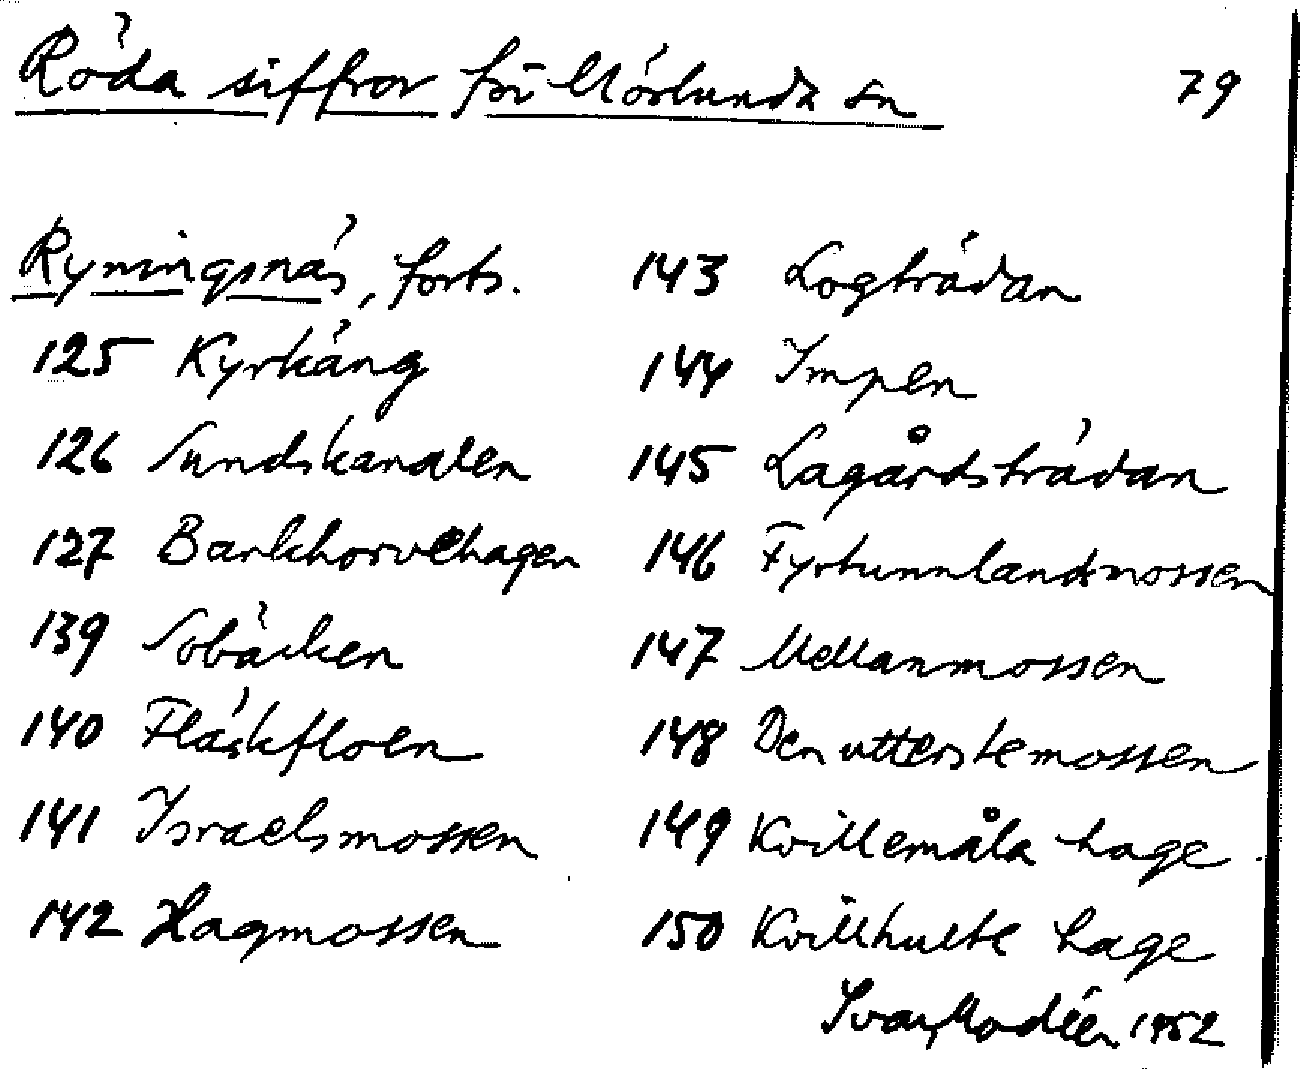 Röda siffror för Mörlunda sn 79
Ryningsnäs, forts.
125 Kyrkäng
126 Sundskanalen
127 Barkhorvehagen
139 Sobäcken
140 Fläskfloen
141 Israelsmossen
142 Hagmossen
143 Logträdan
144 Impen
145 Lagårdsträdan
146 Fyrtunnlandsmossen
147 Mellanmossen
148 Den utterste mossen
149 Kvillemåla hage
150 Kvillhulte hage
Ivar Modéer 1952